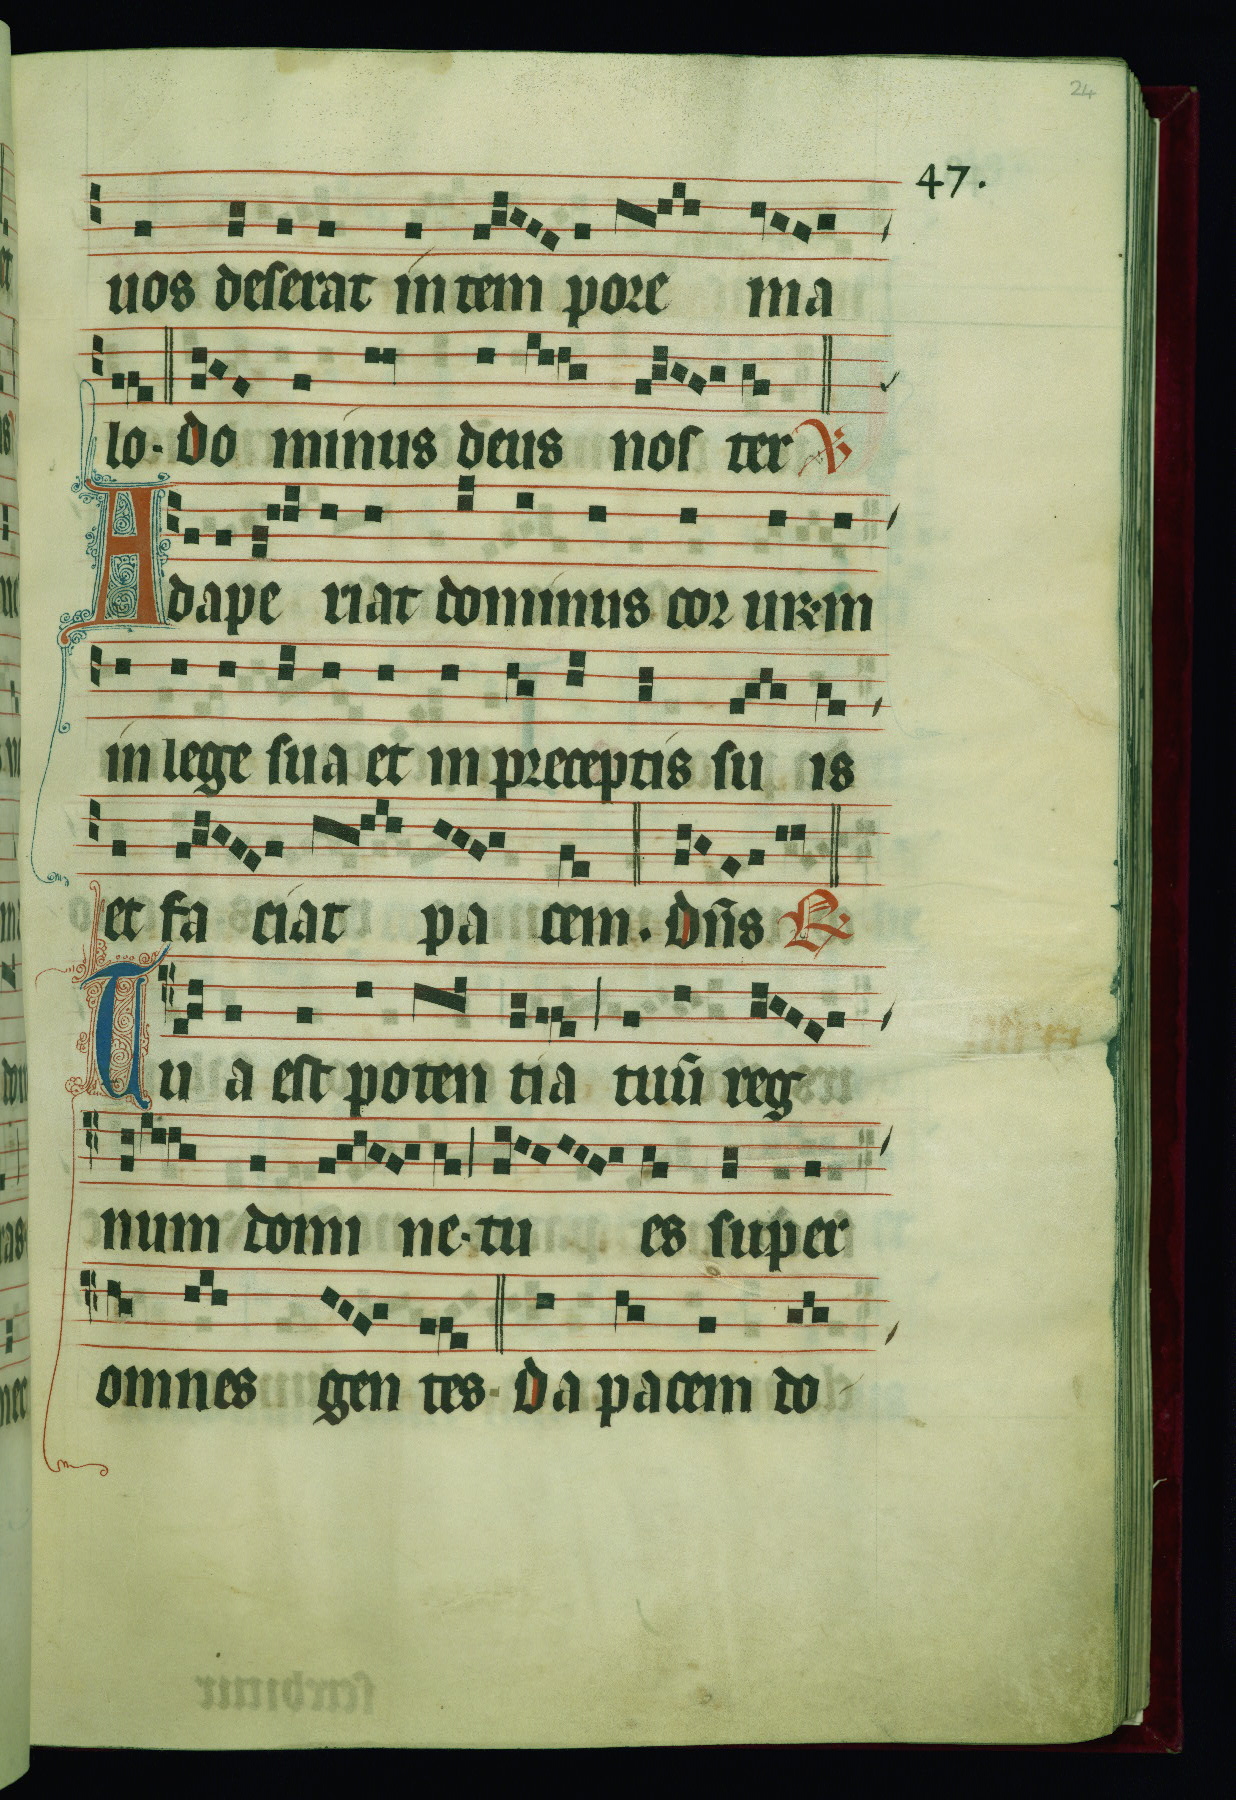 24
47.
uos deserat in tem pore ma
lo. Do minus deus nos ter ℣
Adape riat dominus cor urēm
in lege sua et in preceptis su is
et fa ciat pa cem. Dn̄s ℟
Tu a est poten tia tuū reg
num domi ne. tu es super
omnes gen tes. Da pacem do